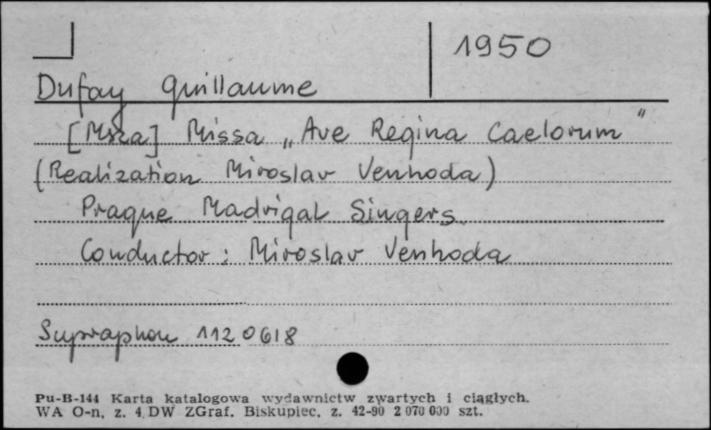 1950
Dufay Guillaume
[Msza] Missa „Ave Regina Caelorum"
(Realization Miroslav Venhoda)
Prague Madrigal Singers
Conductor: Miroslav Venhoda
Supraphon 112 0618
Pu-B-144 Karta katalogowa wydawnictw zwartych i ciągłych.
WA O-n, z. 4 DW ZGraf. Biskupiec, z. 42-90 2 070 000 szt.